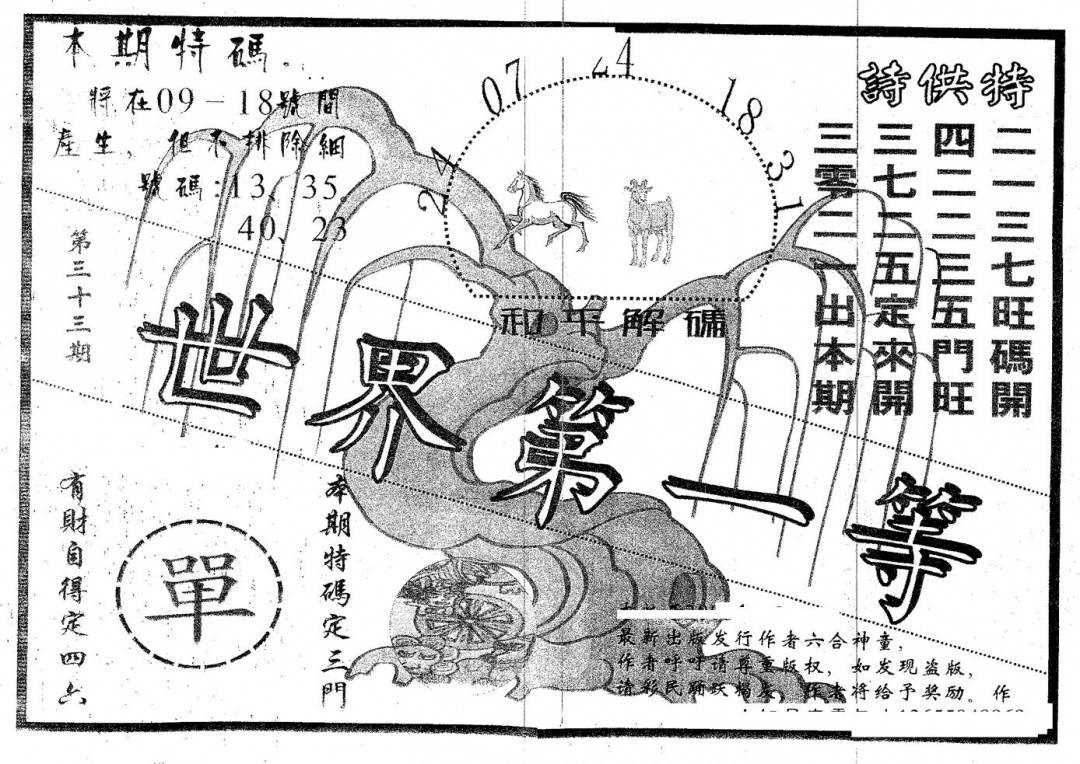 本期特碼。
將在09-18號間
產生，但不排除細
號碼:13、35、
40、23
第三十三期
07
24
18
31
24
特供詩
二一三七旺碼開
四二二三五門旺
三七二五定來開
三零二一出本期
和平解碼
世界第一等
有財自得定四六
單
本期特碼定三門
最新出版发行作者六合神童，
作者呼吁请尊重版权，如发现盗版，
请彩民踊跃揭发，作者将给予奖励。作